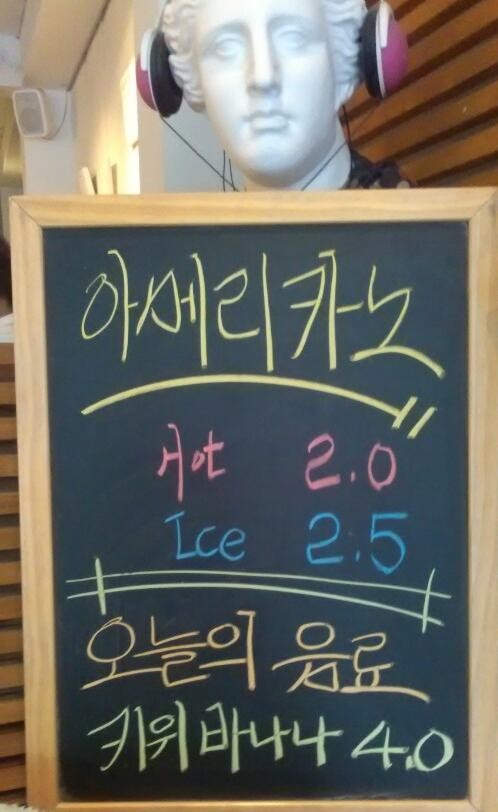 아메리카노
Hot 2.0
Ice 2.5
오늘의 음료
키위바나나 4.0